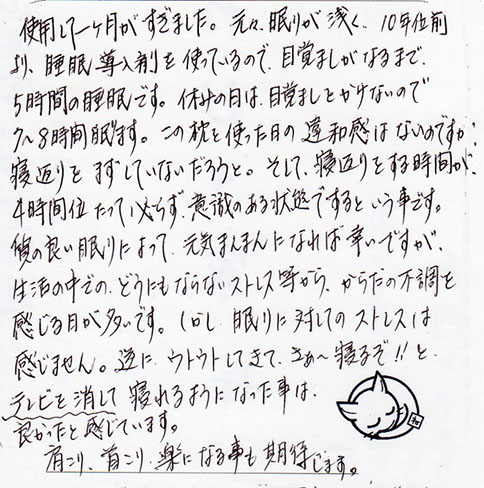 使用して一ヶ月がすぎました。元々、眠りが浅く、10年位前
より、睡眠導入剤を使っているので、目覚ましがなるまで、
5時間の睡眠です。休みの日は、目覚ましをかけないので
7〜8時間眠ます。この枕を使った日の違和感はないのですが、
寝返りをまずしていないだろうと。そして、寝返りをする時間が、
4時間位たって必らず、意識のある状態でするという事です。
質の良い眠りによって、元気まんまんになれば幸いですが、
生活の中での、どうにもならないストレス等から、からだの不調を
感じる日が多いです。しかし、眠りに対してのストレスは
感じません。逆に、ウトウトしてきて、さぁ〜寝るぞ!!と、
テレビを消して寝れるようになった事は、
良かったと感じています。
肩こり、首こり、楽になる事も期待します。